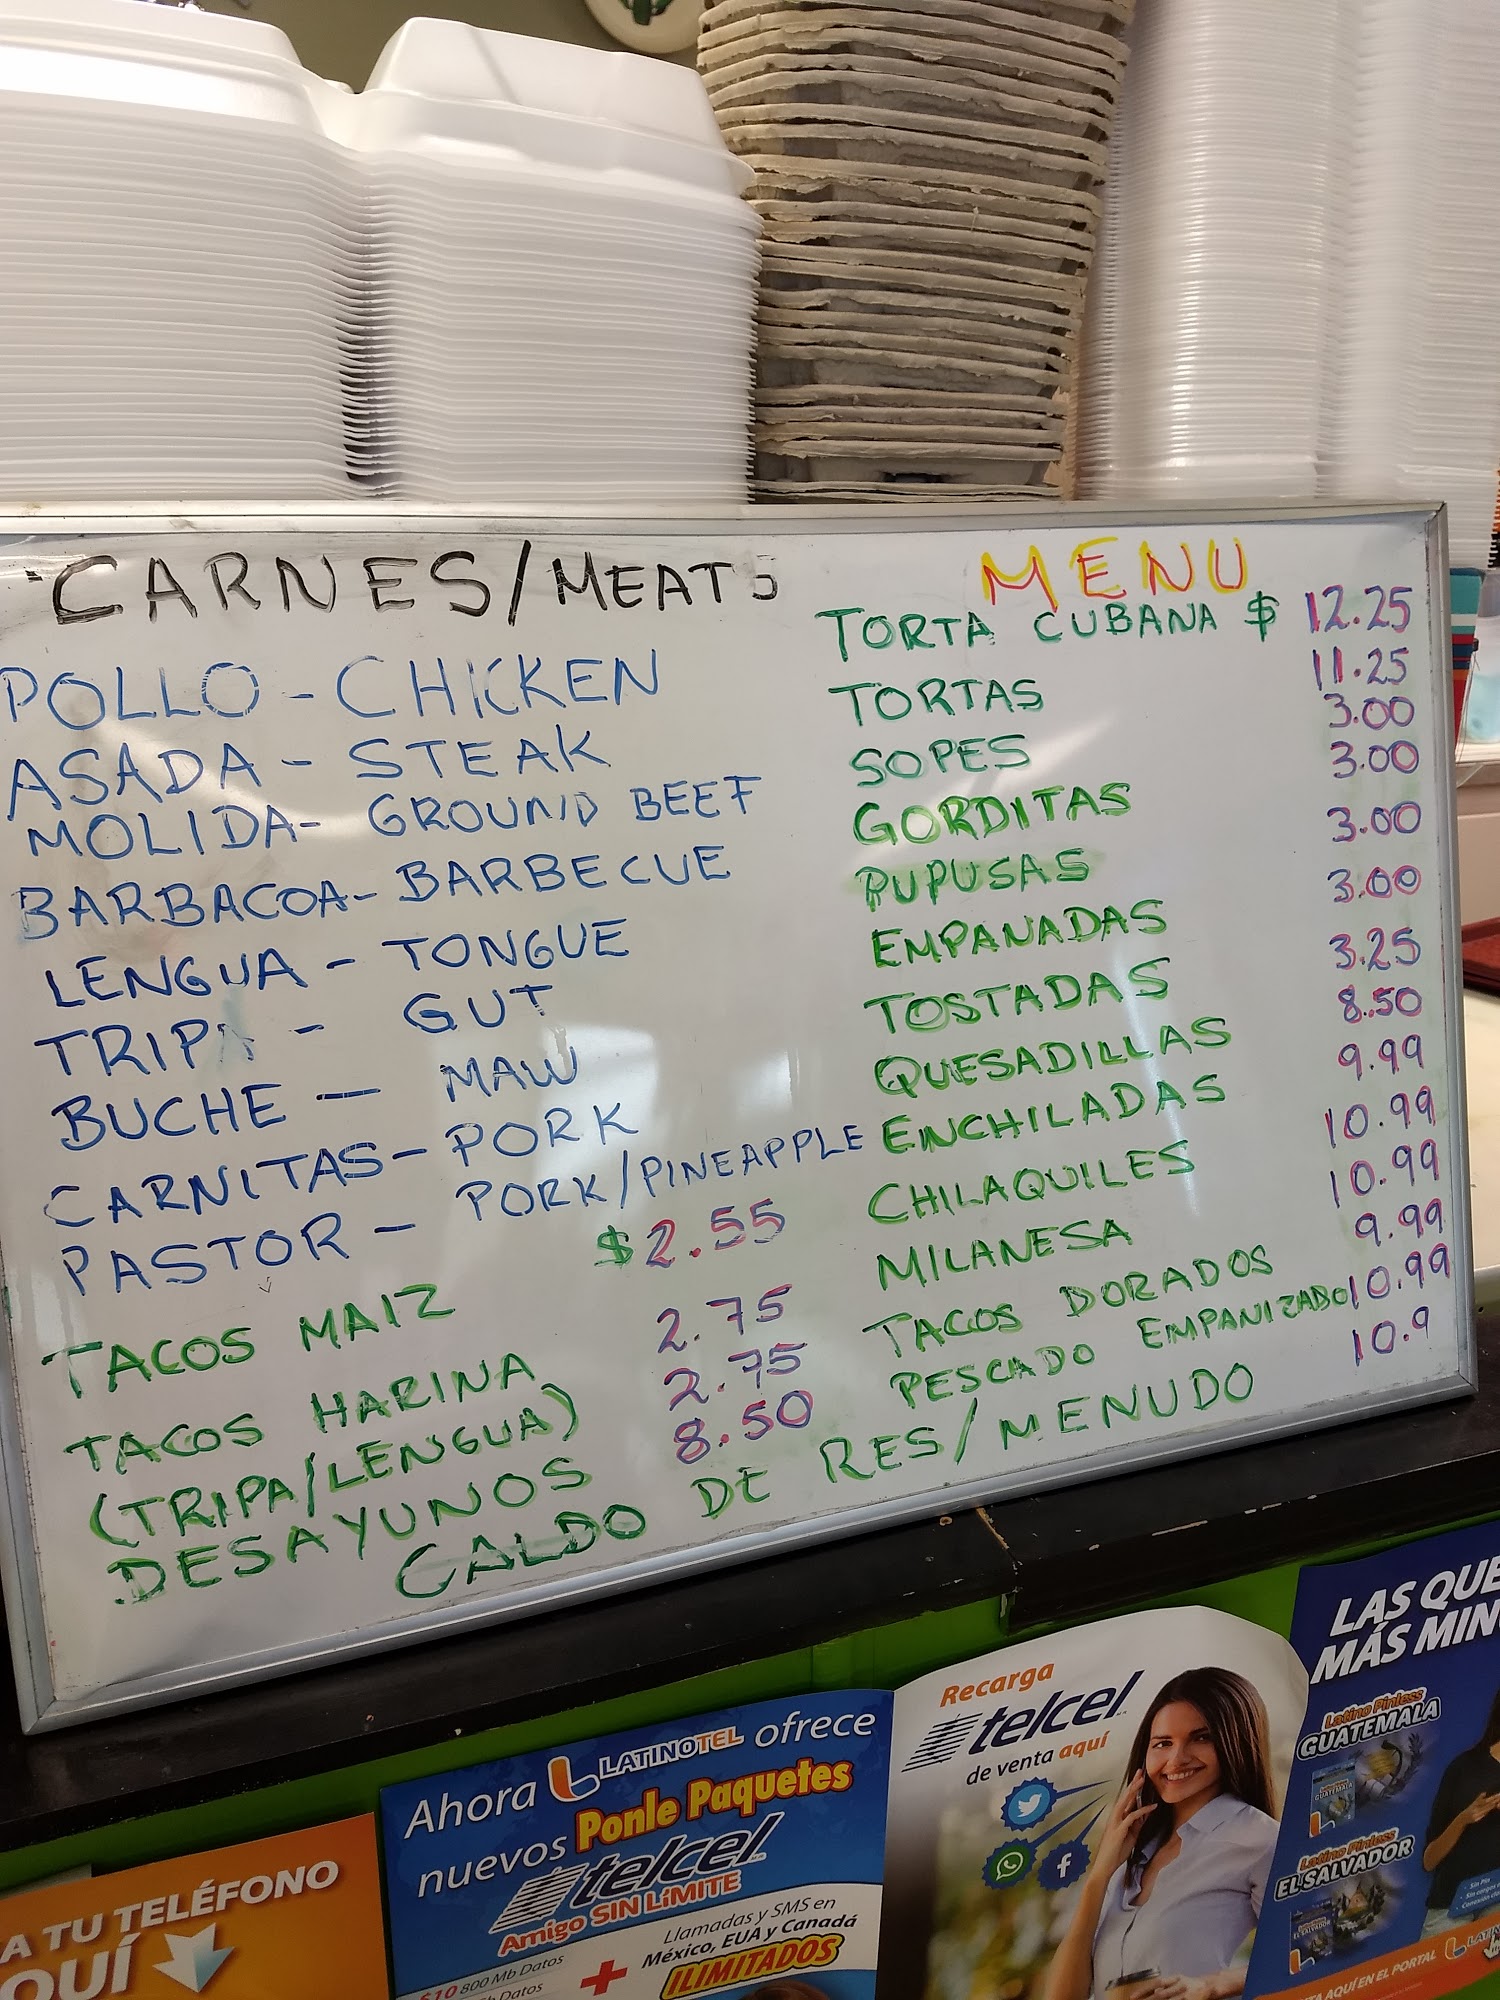 CARNES/MEATS
POLLO - CHICKEN
ASADA - STEAK
MOLIDA - GROUND BEEF
BARBACOA - BARBECUE
LENGUA - TONGUE
TRIPA - GUT
BUCHE - MAW
CARNITAS - PORK
PASTOR - PORK/PINEAPPLE
TACOS MAIZ $2.55
TACOS HARINA 2.75
(TRIPA/LENGUA) 2.75
DESAYUNOS 8.50
MENU
TORTA CUBANA $ 12.25
TORTAS 11.25
SOPES 3.00
GORDITAS 3.00
PUPUSAS 3.00
EMPANADAS 3.00
TOSTADAS 3.25
QUESADILLAS 8.50
ENCHILADAS 9.99
CHILAQUILES 10.99
MILANESA 10.99
TACOS DORADOS 9.99
PESCADO EMPANIZADO 10.99
CALDO DE RES/MENUDO 10.9
A TU TELÉFONO
QUÍ
Ahora LATINOTEL ofrece
nuevos Ponle Paquetes
telcel
Amigo SIN LÍMITE
$10 800 Mb Datos
Datos
+
Llamadas y SMS en
México, EUA y Canadá
ILIMITADOS
Recarga
telcel
de venta aquí
LAS QUE
MÁS MIN
Latino Pinless
GUATEMALA
Latino Pinless
EL SALVADOR
AQUÍ EN EL PORTAL